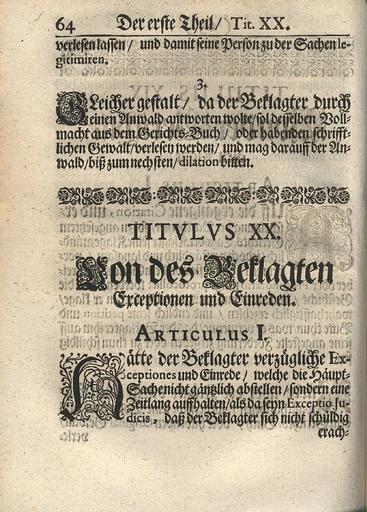 64 Der erste Theil / Tit. XX.
verlesen lassen / und damit seine Person zu der Sachen le-
gitimiren.
3.
GLeicher gestalt / da der Beklagter durch
einen Anwald antworten wolte / sol desselben Voll-
macht aus dem Gerichts-Buch / oder habenden schrifft-
lichen Gewalt / verlesen werden / und mag darauff der An-
wald / biß zum nechsten / dilation bitten.
TITVLVS XX.
Von des Beklagten
Exceptionen und Einreden.
ARTICULUS I.
HAtte der Beklagter verzügliche Ex-
ceptiones und Einrede / welche die Häupt-
Sache nicht gäntzlich abstellen / sondern eine
Zeitlang auffhalten / als da seyn Exceptio Ju-
dicis, daß der Beklagter sich nicht schüldig
erach-